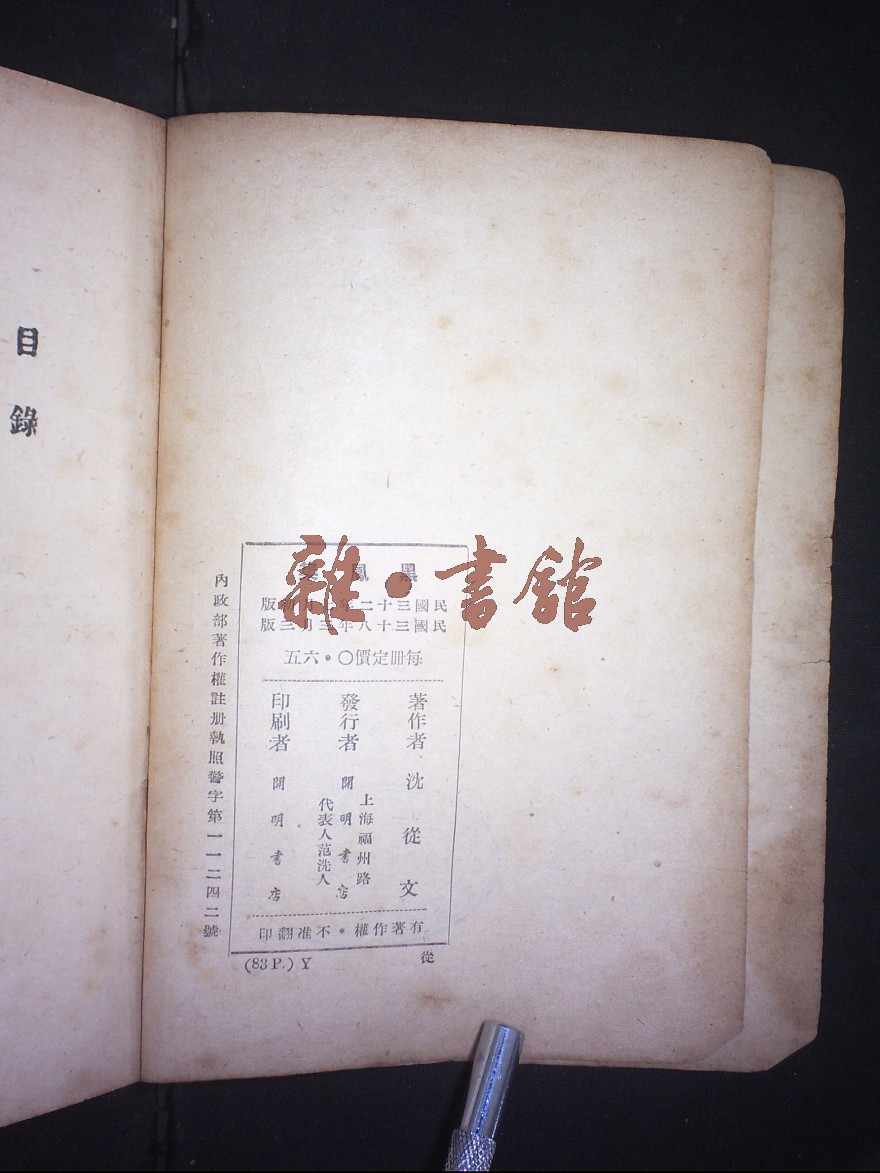 目錄
雜·書館
黑鳳
民國三十二年月初版
民國三十八年三月三版
每冊定價〇・六五
著作者 沈從文
發行者 開明書店
上海福州路
代表人范洗人
印刷者 開明書店
有著作權・不准翻印
(83 P.) Y
從
內政部著作權註册執照警字第一一二四二號